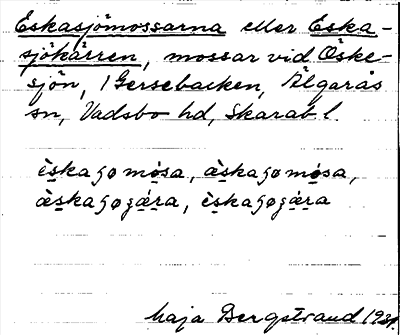 Eskasjömossarna eller Eska-
sjökärren, mossar vid Öske-
sjön, 1 Gersebacken, Älgarås
sn, Vadsbo hd, Skarab l.
ὲskaʒomo̜sa, æ̀skaʒomo̜sa,
æ̀skaʒoʒæ̜ra, ὲskaʒoʒæ̜ra
Maja Bergstrand 1931.